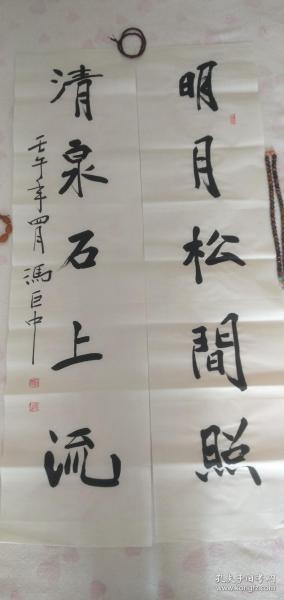 明月松間照
清泉石上流
壬午年四月 馮巨中
孔夫子旧书网
www.kongfz.com